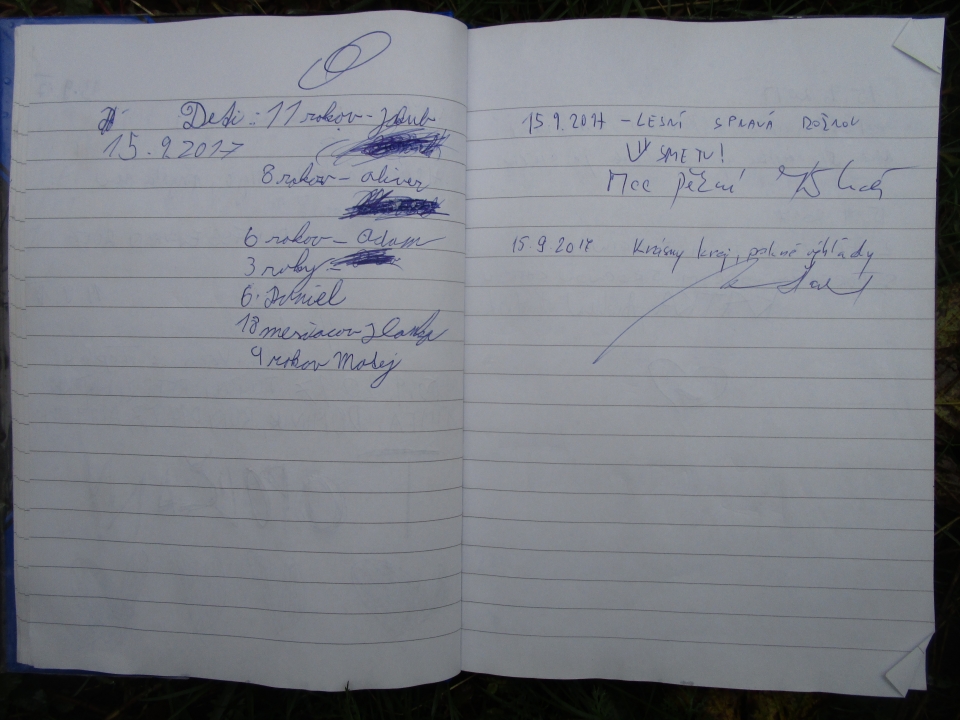 Deti: 11 rokov - Jakub
15.9.2017
8 rokov - oliver
6 rokov - Adam
3 roky -
6. Daniel
18 mesiacov
9 rokov Matej
15.9.2017 - LESNÍ SPRAVA
V SMETU!
15.9.2017 Krásny kraj, pekné výhľady